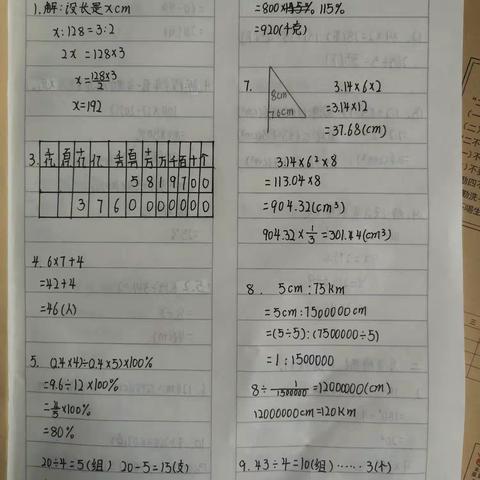 1.解:设长是xcm
x:128=3:2
2x=128×3
x=\frac{128×3}{2}
x=192
3.
5 8 1 9 7 0 0
3 7 6 0 0 0 0 0 0 0 0
4. 6×7+4
=42+4
=46(人)
5. (2.4×4)÷(2.4×5)×100%
=9.6÷12×100%
=\frac{4}{5}×100%
=80%
20÷4=5(组) 20-5=15(支)
=920(千克)
7.
8cm
6cm
3.14×6×2
=3.14×12
=37.68(cm)
3.14×6²×8
=113.04×8
=904.32(cm³)
904.32×\frac{1}{3}=301.44(cm³)
8. 5cm:75km
=5cm:7500000cm
=(5÷5):(7500000÷5)
=1:1500000
8÷\frac{1}{1500000}=12000000(cm)
12000000cm=120km
9. 43÷4=10(组)……3(个)